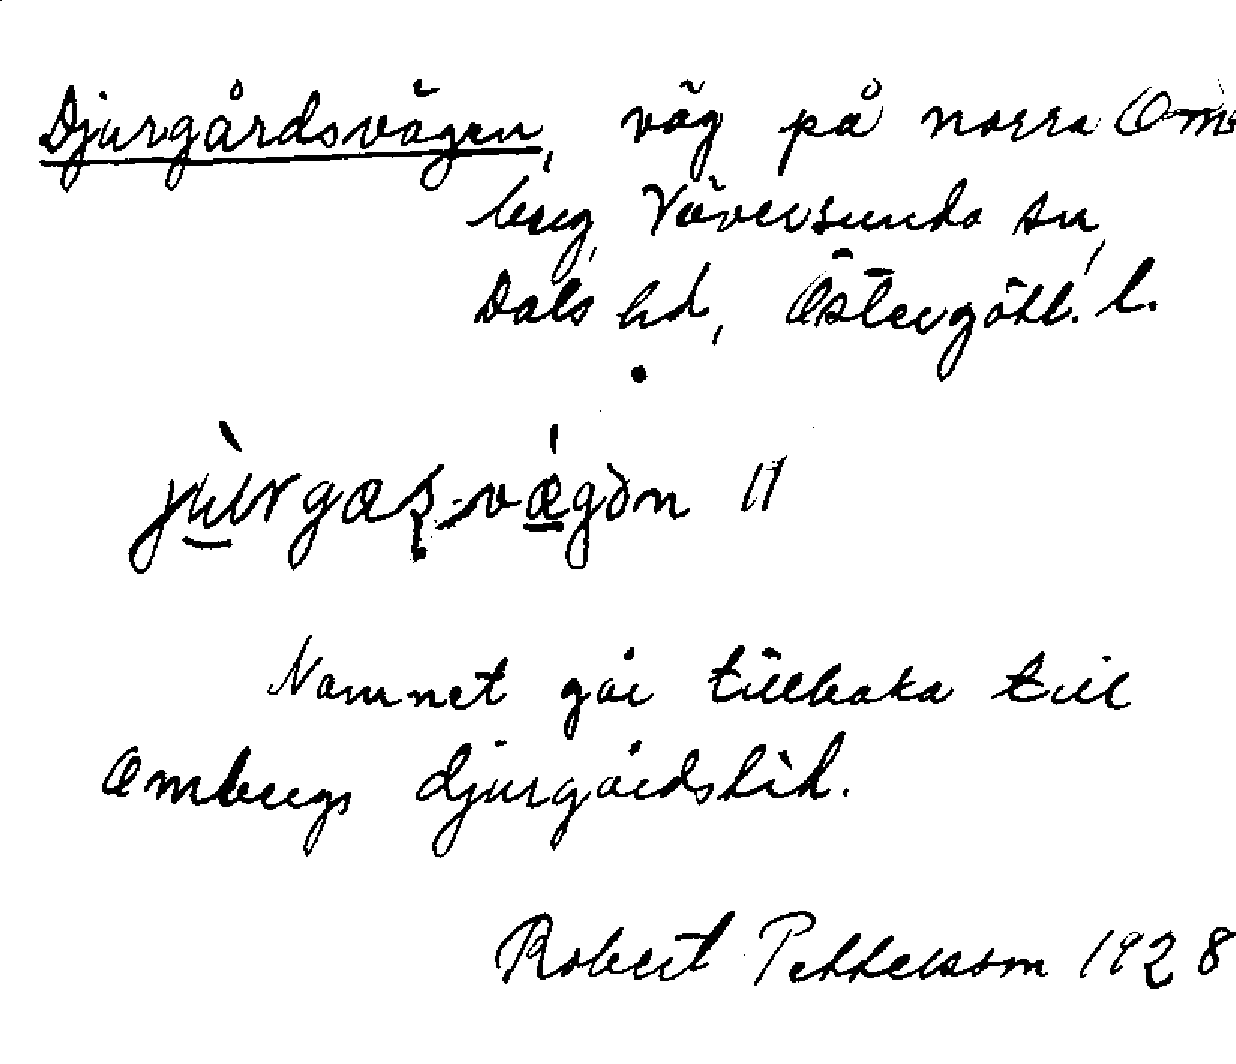 Djurgårdsvägen, väg på norra Om-
berg, Väversunda sn,
Dals hd, Östergötl. l.
jùrgaʂ-vǽgən 11
Namnet går tillbaka till
Ombergs djurgårdstid.
Robert Pettersson 1928